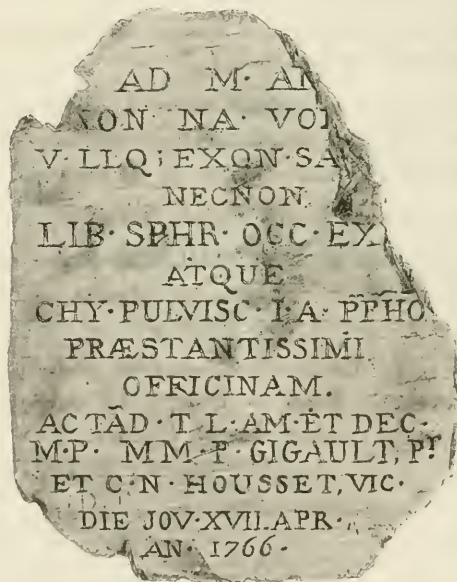 AD M·
NA·
V·LLQ; EXON·SA
NECNON
LIB·SPHR·OCC·EX
ATQUE
CHY·PULVISC·I·A· P̄P̄HO
PRÆSTANTISSIMI
OFFICINAM.
ACTĀD·T·L·AM·ET DEC·
M·P· MM·P·GIGAULT, Pr
ET C·N·HOUSSET, VIC·
DIE JOV·XVII·APR·
AN· 1766·